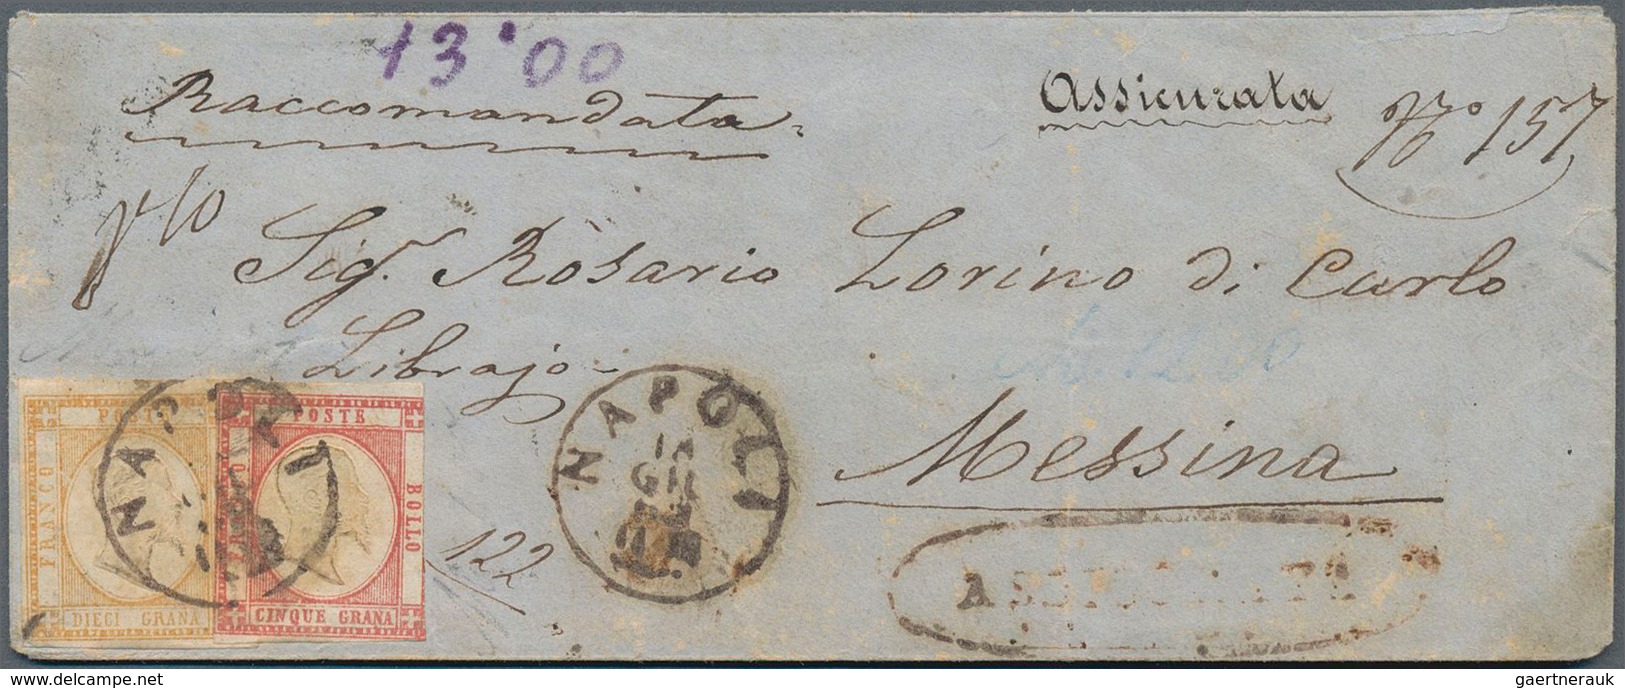 13'00
Raccomandata
Assicurata
No 157
Sig. Rosario Lorino di Carlo
Librajo
Messina
POSTE
FRANCO
DIECI GRANA
POSTE
BOLLO
CINQUE GRANA
NAPOLI
NAPOLI
GIU
122
delcampe.net
gaertnerauk